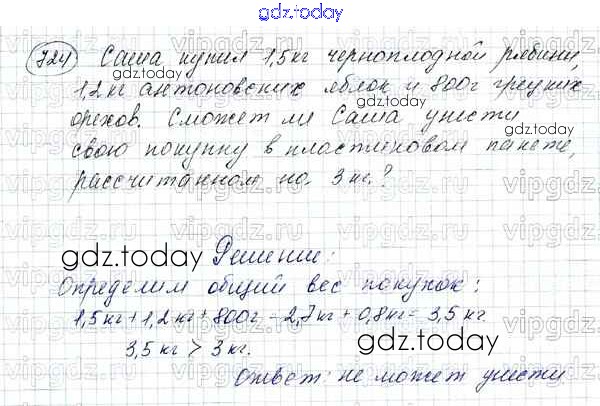 gdz.today
724 Саша купил 1,5кг черноплодной рябины,
1,2кг антоновских яблок и 800г грецких
орехов. Сможет ли Саша унести
свою покупку в пластиковом пакете,
рассчитанном на 3кг.?
Решение:
Определим общий вес покупок:
1,5кг+1,2кг+800г = 2,7кг+0,8кг= 3,5 кг
3,5 кг > 3 кг.
Ответ: не может унести